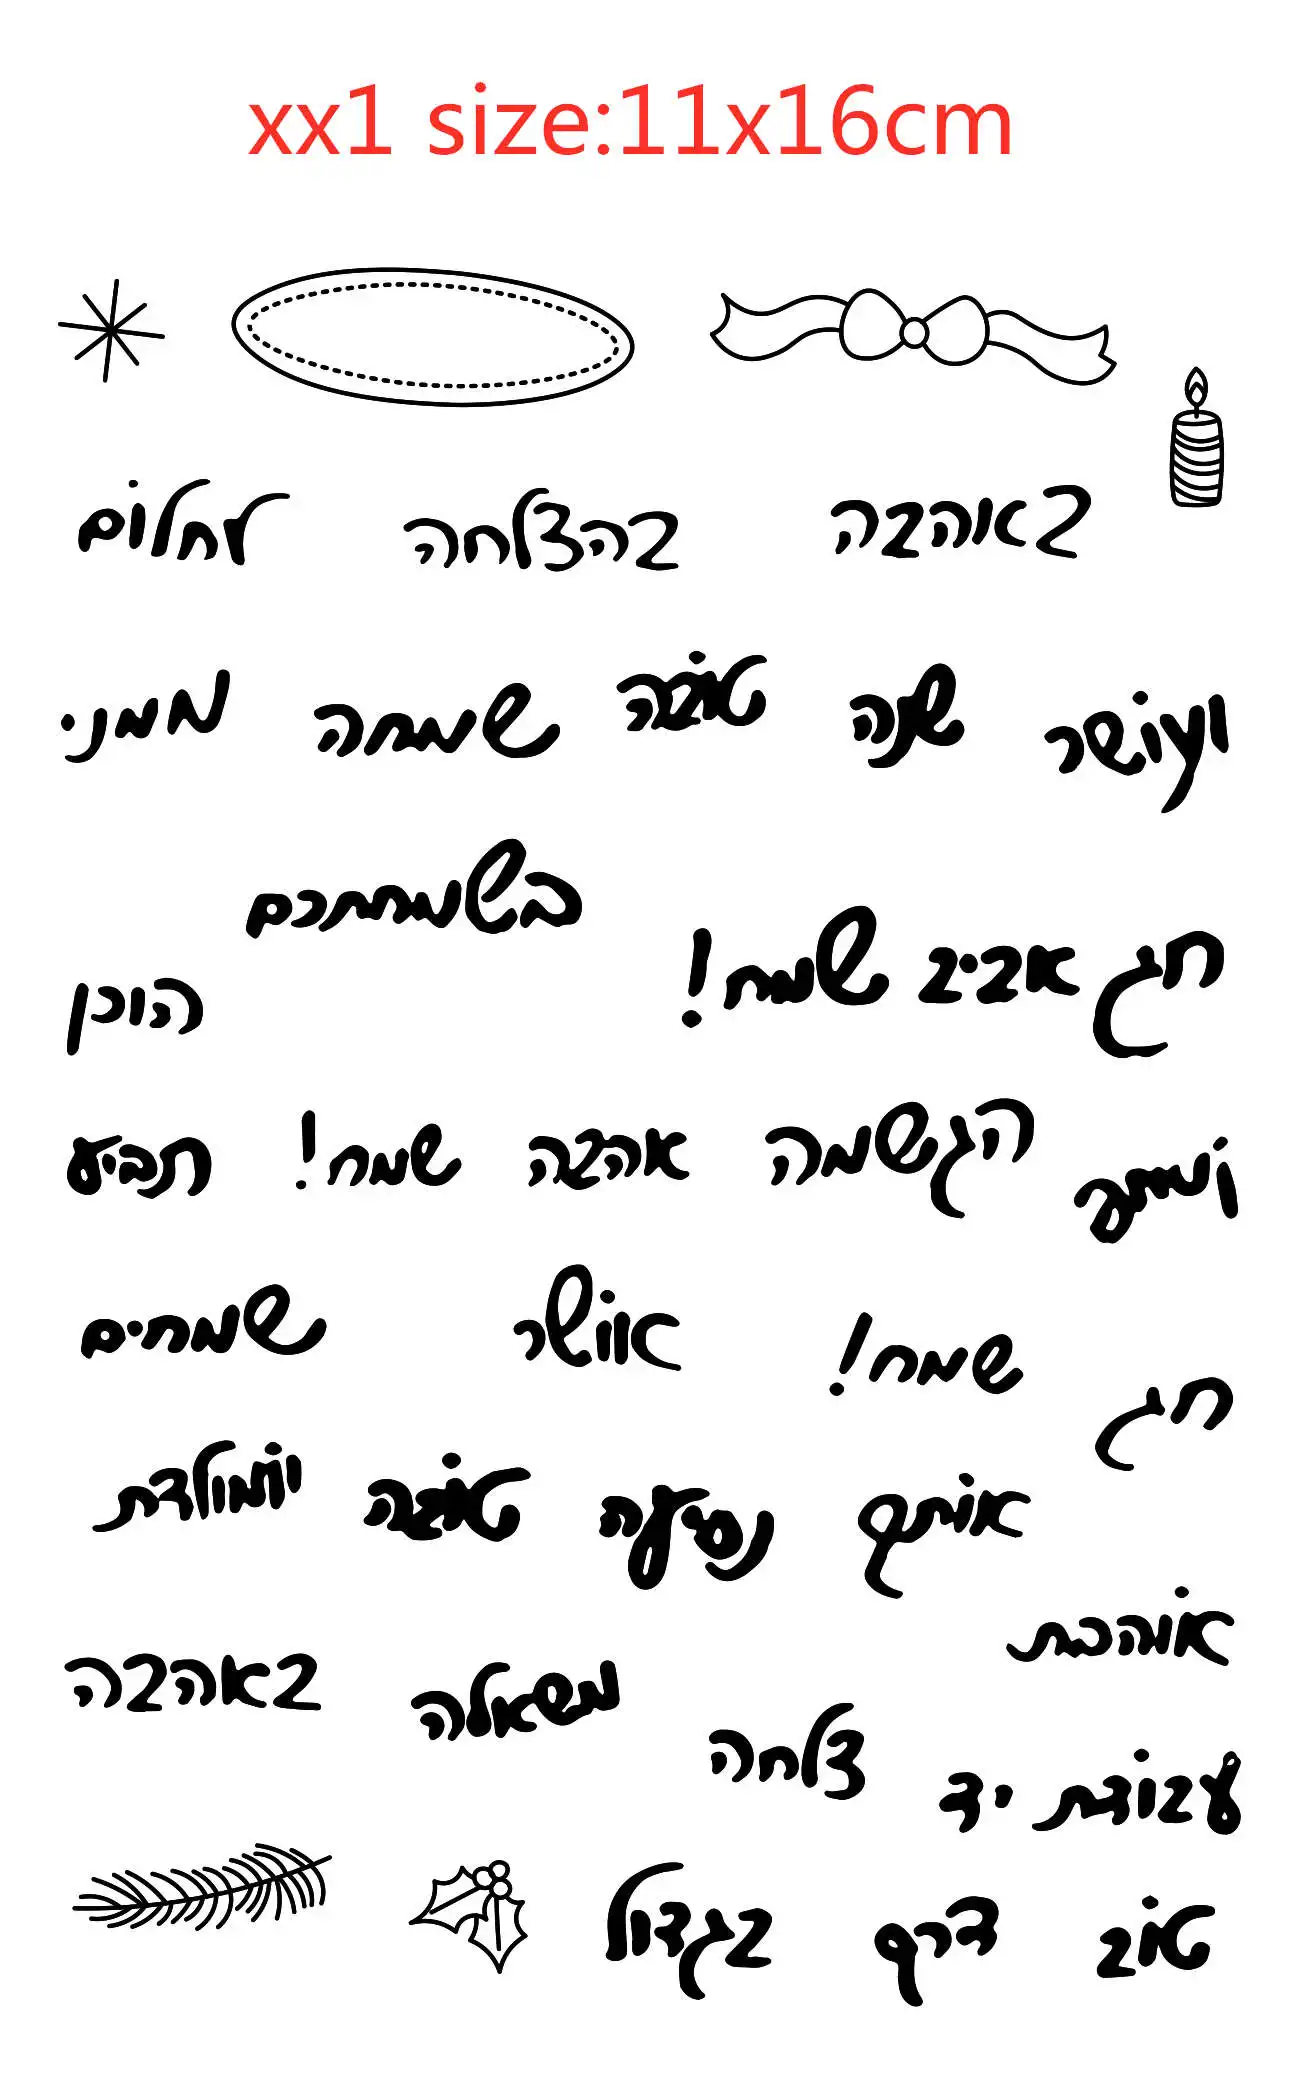 xx1 size:11x16cm
באהבה בהצלחה לחלום
ועושר שנה טובה שמחה ממני
בשמחתכם
חג אביב שמח!
הוכן
הגשמה אהבה שמח! תביע
שמחים
אושר
שמח!
חג
יומולדת
טובה
נסיעה
אותך
אוהבת
באהבה
משאלה
צלחה
עבודת יד
טוב דרך בגדול